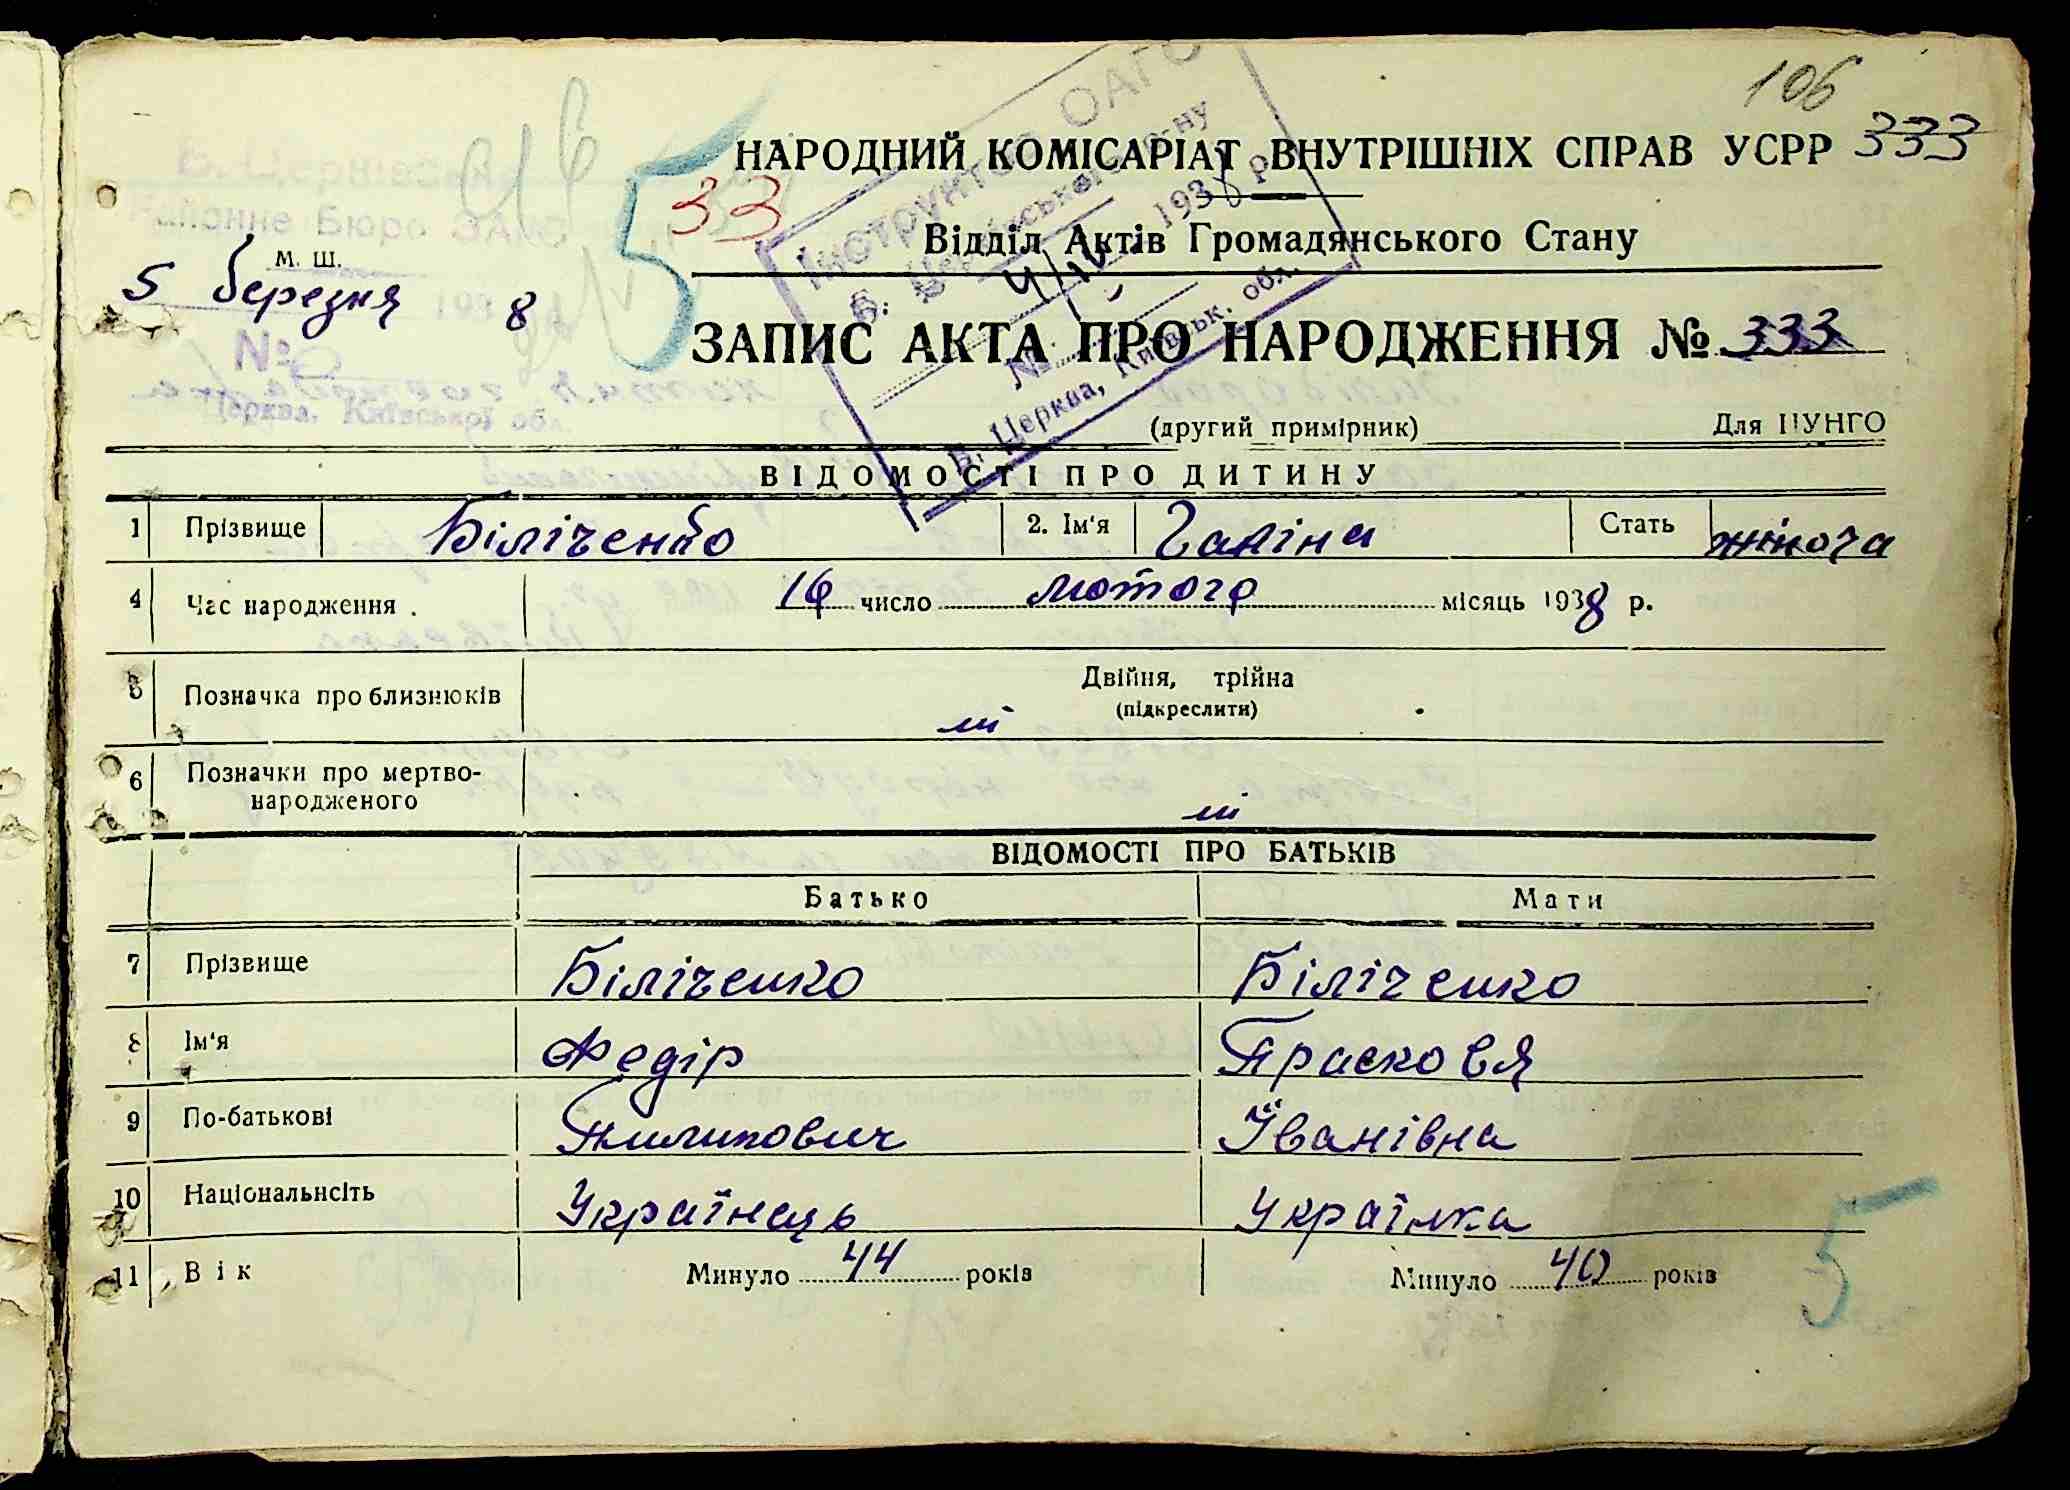 106
НАРОДНИЙ КОМІСАРІАТ ВНУТРІШНІХ СПРАВ УСРР 333
5 33
Відділ Актів Громадянського Стану
М. Ш.
5 березня 193 8
№
Церква, Київської обл.
Інструктор ОАГС
Б. Церківського р-ну
1938 р.
№
Б. Церква, Київськ. обл.
ЗАПИС АКТА ПРО НАРОДЖЕННЯ № 333
(другий примірник) Для ЦУНГО
ВІДОМОСТІ ПРО ДИТИНУ
1 Прізвище Біліченко 2. Ім'я Галіна Стать жіноча
4 Час народження . 16 число лютого місяць 1938 р.
5 Позначка про близнюків Двійня, трійна
(підкреслити)
ні
6 Позначки про мертво-
народженого
ні
ВІДОМОСТІ ПРО БАТЬКІВ
Батько Мати
7 Прізвище Біліченко Біліченко
8 Ім'я Федір Прасковя
9 По-батькові Пилипович Іванівна
10 Національнсіть Українець Українка
11 Вік Минуло 44 років Минуло 40 років
5